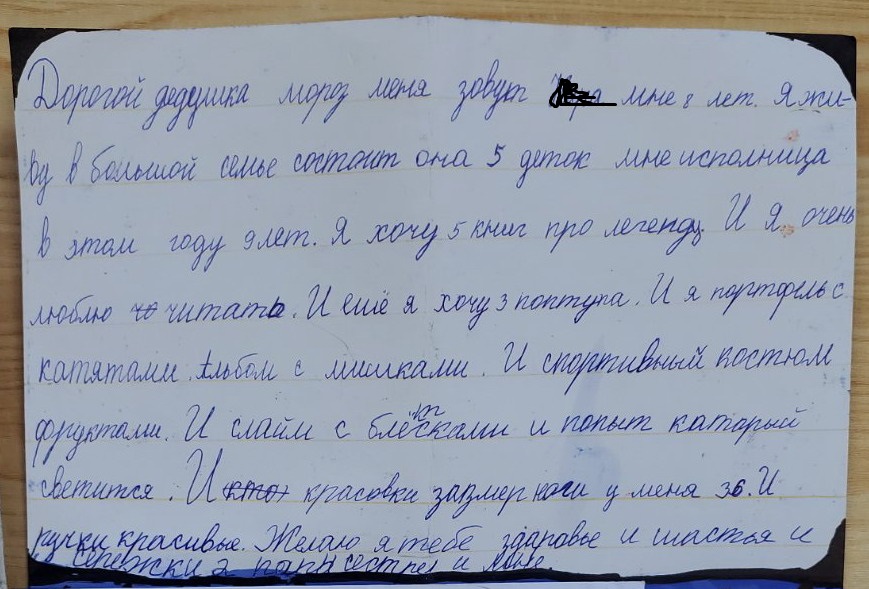 Дорогой дедушка мороз меня зовут мне 8 лет. Я жи-
ву в большой семье состоит она 5 деток мне исполница
в этом году 9 лет. Я хочу 5 книг про легенды. И Я очень
люблю читать. И ещё я хочу 3 поптупа. И я портфель с
катятами. Альбом с мишками. И спортивный костюм
фруктами. И слайм с блёстками и попыт катарый
светится. И красовки зазмер ноги у меня 36. И
ручки красивые. Желаю я тебе здаровье и шастья и
Серёжки 2 пары сестре и мне.